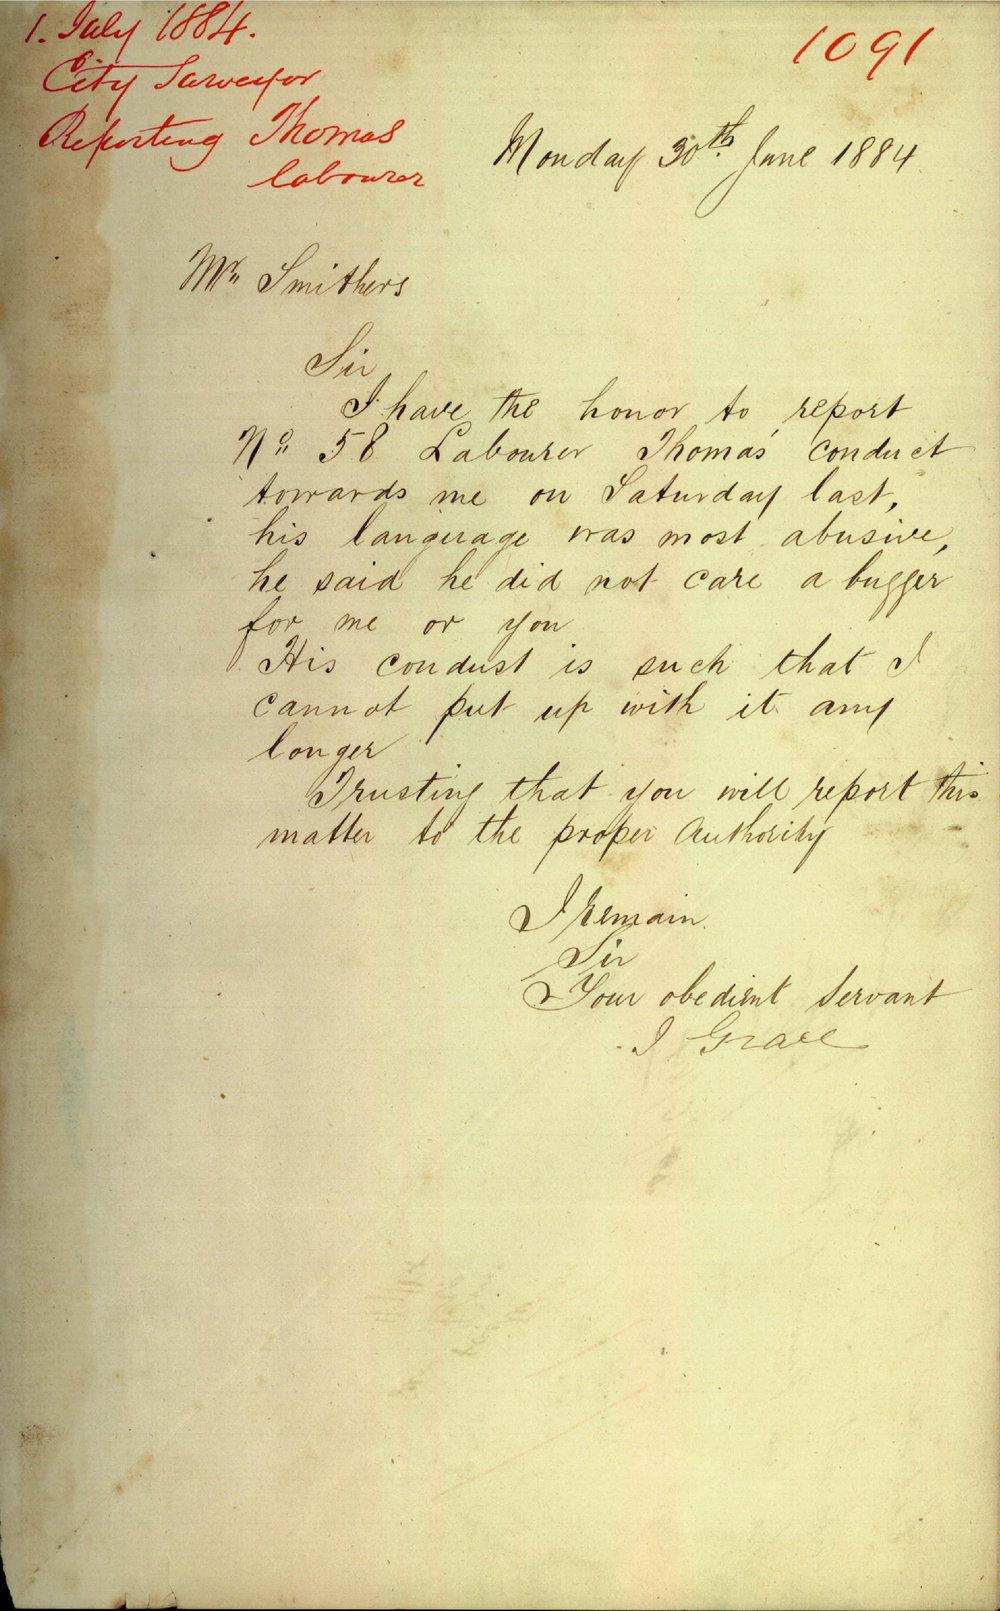 1. July 1884.
City Surveyor
Reporting Thomas
labourer
1091
Monday 30th June 1884
Mr Smithers
Sir
I have the honor to report
No 58 Labourer Thomas' conduct
towards me on Saturday last,
his language was most abusive,
he said he did not care a bugger
for me or you
His conduct is such that I
cannot put up with it any
longer
Trusting that you will report this
matter to the proper Authority
I remain
Sir
Your obedient Servant
J Grace